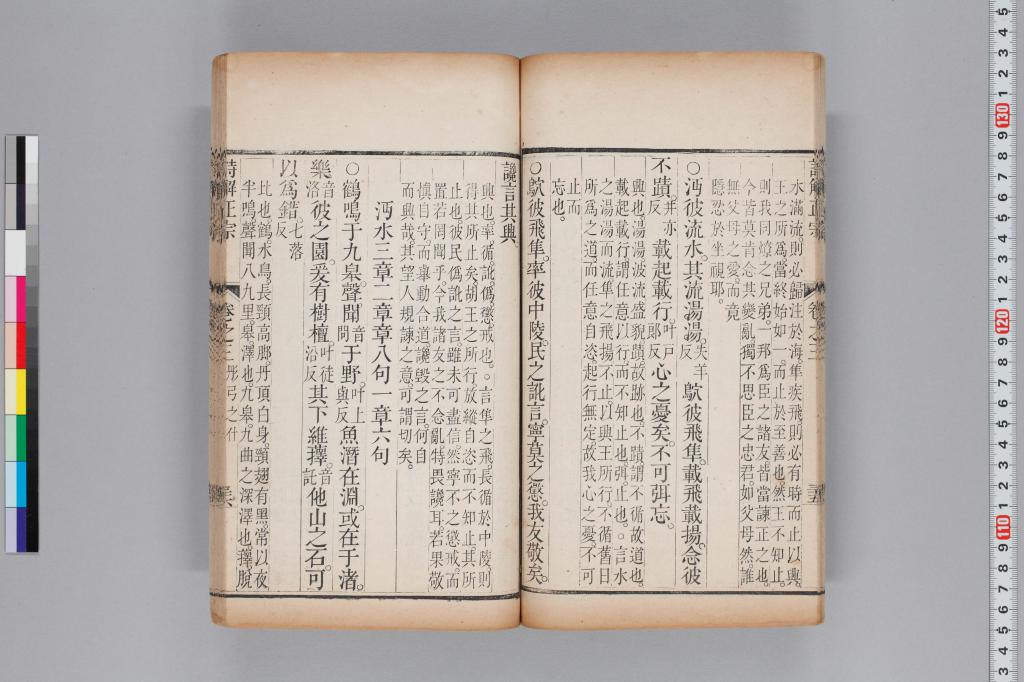 水滿流則必歸注於海隼疾飛則必有時而止以興
王之所爲當終始如一而止於至善也然王不知止
則我同燎之兄弟邦爲臣之諸友皆當諫正之也
今皆莫肯念其變亂獨不思臣之忠君如父母然誰
無父母之愛而竟
隱忍於坐視耶
○沔彼流水其流湯湯失羊反鴥彼飛隼載飛載揚念彼
不蹟井亦反載起載行叶戸郞反心之憂矣不可弭忘
興也湯湯波流盛貌蹟故跡也不蹟謂不循故道也
載起載行謂任意以行而不知止也弭止也○言水
之湯湯而流隼之飛揚不止以興王所行不循舊日
所爲之道而任意自恣起行無定故我心之憂不可
止而
忘也
○鴥彼飛隼率彼中陵民之訛言寧莫之懲我友敬矣
讒言其興
興也率循訛僞懲戒也○言隼之飛長循於中陵則
得其所止矣胡王之所行放縱自恣而不知止其所
止也彼民僞訛之言雖未可盡信然寧不之懲戒而
置若罔聞乎今我諸友之不念亂特畏讒耳若果敬
慎自守而舉動合道讒毀之言何自
而興哉其望人規諫之意可謂切矣
沔水三章二章章八句一章六句
○鶴鳴于九皋聲聞音問于野叶上與反魚潛在淵或在于渚
樂音洛彼之園爰有樹檀叶徒沿反其下維蘀音託他山之石可
以爲錯七落反
比也鶴水鳥長頸高腳丹頂白身頸翅有黑常以夜
半鳴聲聞八九里皋澤也九皋九曲之深澤也蘀脫
詩解正宗 卷之三 彤弓之什